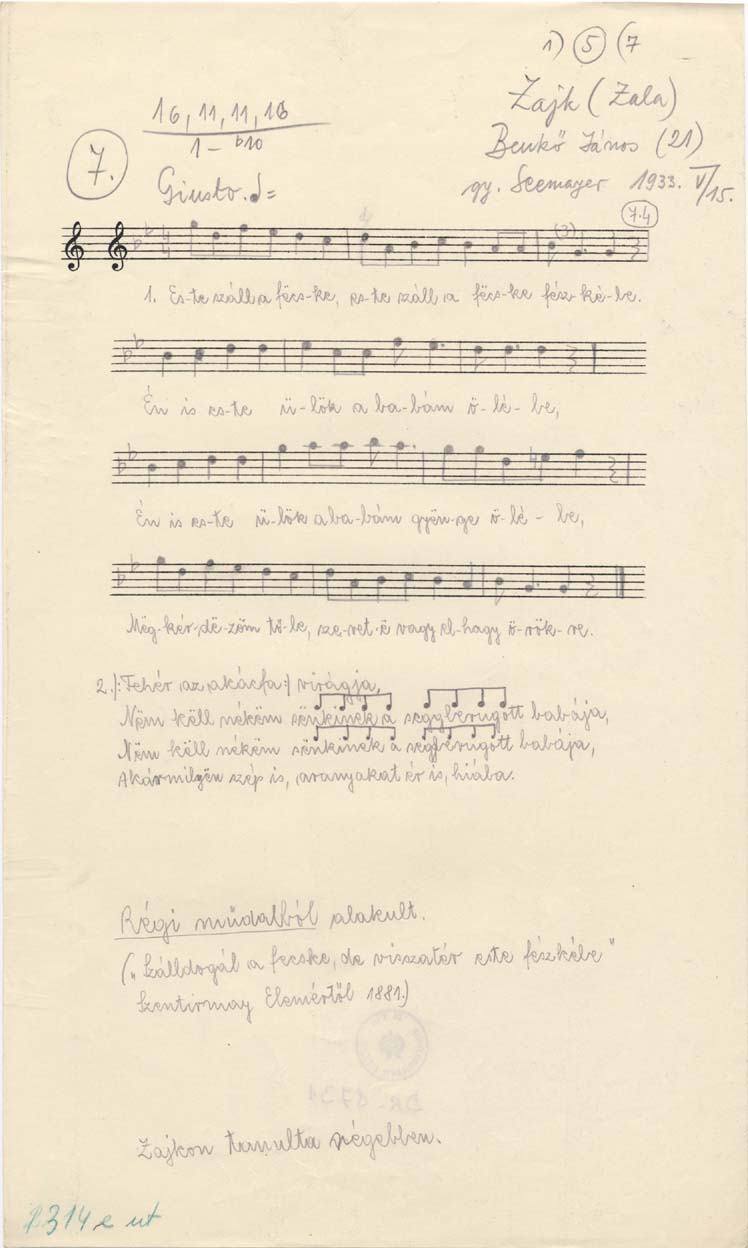 1) 5 (7
16, 11, 11, 16
1 – b10
7.
Zajk (Zala)
Benkő János (21)
Giusto. ♩=
gy. Seemayer 1933. V/15.
7.4
(3)
1. Es-te száll a fëcs-ke, es-te száll a fëcs-ke fész-ké-be.
Én is es-te ü-lök a ba-bám ö-lé-be,
Én is es-te ü-lök a ba-bám gyën-ge ö-lé-be,
Mëg-kér-dë-zöm tő-le, sze-ret-ë vagy el-hagy ö-rök-re.
2. /:Fehér az akácfa:/ virágja,
Nëm këll nékëm sënkinek a segyberugott babája,
Nëm këll nékëm sënkinek a segberugott babája,
Akármilyën szép is, aranyakat ér is, hiába.
Régi műdalból alakult.
(„Szálldogál a fecske, de visszatér este fészkébe"
Szentirmay Elemértől 1881.)
Zajkon tanulta régebben.
1314 e ut